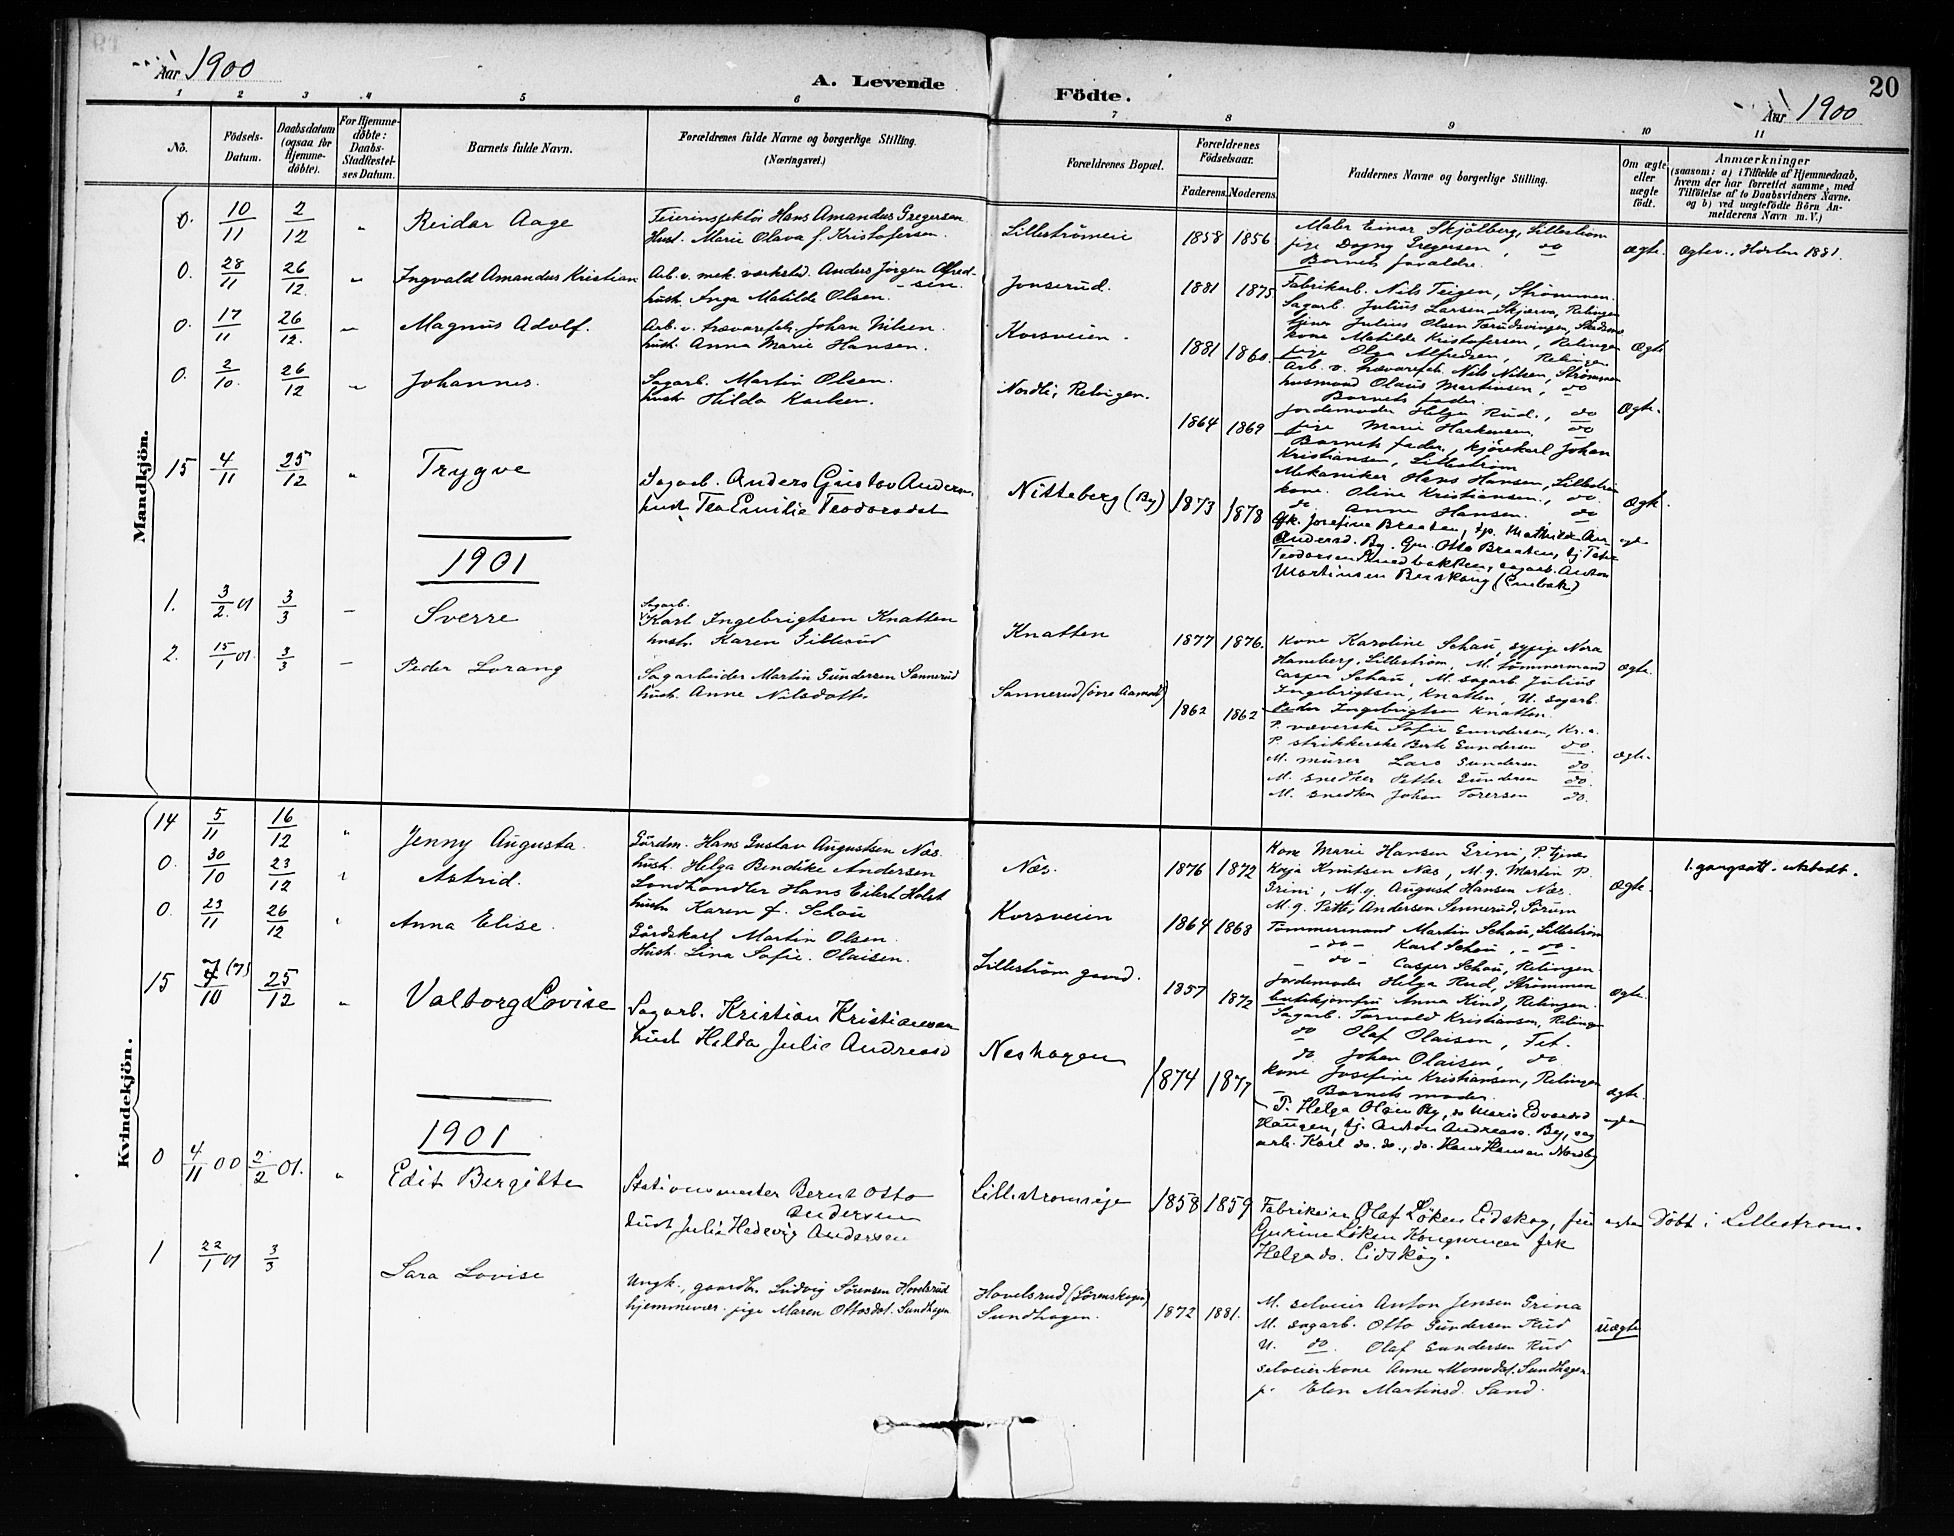 Aar 1900
A. Levende Födte.
20
Aar 1900
1 2 3 4 5 6 7 8 9 10 11
Nö.
Födsels-Datum.
Daabsdatum (ogsaa for Hjemme-döbte).
For Hjemme-döbte: Daabs-Stadfæstel-ses Datum.
Barnets fulde Navn.
Forældrenes fulde Navne og borgerlige Stilling. (Næringsvei.)
Forældrenes Bopæl.
Forældrenes Födselsaar.
Faderens. Moderens.
Faddernes Navne og borgerlige Stilling.
Om ægte eller uægte födt.
Anmærkninger
(saasom: a) i Tilfælde af Hjemmedaab,
hvem der har forrettet samme, med
Tilföielse af to Daabsvidners Navne.
og b) ved uægtefödte Börn An-
melderens Navn m. V.)
Mandkjön.
0. 10/11 2/12 " Reidar Aage
Feierinspektör Hans Amandus Gregersen
Hust. Marie Olava f. Kristofersen.
Lilleströmeie 1858 1856
Maler Einar Skjölberg, Lilleström
pige Dagny Gregersen, do
Barnets forældre.
Ægte. Ægtev., Horten 1881.
0. 28/11 26/12. " Ingvald Amandus Kristian
Arb. v. mek. værksted. Anders Jörgen Alfred-
sen.
hust. Inga Matilde Olsen.
Jonserud. 1881 1875
Fabrikarb. Nils Teigen, Strömmen.
Sagarb. Julius Larsen Skjærva, Relingen
tjener Julius Olsen
kone Matilde Kristofersen, Relingen
pige Olga Alfredsen, Relingen
Ægte
0. 17/11 26/12. " Magnus Adolf.
Arb. v. trævarefab. Johan Nilsen.
hust. Anna Marie Hansen.
Korsveien. 1881 1860.
Arb. v. trævarefab. Nils Nilsen, Strömmen
husmand Olaus Martinsen, do
Barnets fader.
Jordemoder Helga Rud, do
pige Marie do
Ægte.
0. 2/10. 26/12 " Johannes.
Sagarb. Martin Olsen.
hust. Hilda Karlsen.
Nordli, Relingen. 1864 1869
Barnets fader, kjörekarl Johan
Kristiansen, Lilleström
Mekaniker Hans Hansen, Lilleström
kone Oline Kristiansen, do
do Anna Hansen. do
Ægte.
15 4/11 25/12 " Trygve
Sagarb. Anders Gustav Anders.
hust Tea Emilie Teodorsdat
Nitteberg (By) 1873 1878
Gk. Josefine Braaten, tp. Mathilde
Andersd. By. Gm. Otto Braaten, tj
Teodorsen, sagarb. Anton
Martinsen (Enebak)
1901
1. 3/2. 01 3/3 — Sverre
Sagarb.
Karl Ingebrigtsen Knatten
hust. Karen
Knatten 1877 1876.
Kone Karoline Schau, sypige Nora
Haneberg, Lilleström, M. tömmermand
Casper Schau, M. sagarb. Julius
Ingebrigtsen, Knatten, U. sagarb.
Peder Ingebrigtsen Knatten.
Ægte.
2. 15/1 01. 3/3 — Peder Lorang
Sagarbeider Martin Gundersen Sannerud
hust. Anne Nilsdatter
Sannerud (övre Aamodt) 1862 1862
P. væverske Sofie Gundersen, Kr.a.
P. strikkerske Berte Gundersen do.
M. murer Lars Gundersen do.
M. snedker Petter Gundersen do.
M. snedker Johan Torersen do.
Ægte.
Kvindekjön.
14 5/11 16/12 " Jenny Augusta.
Gårdm. Hans Gustav Augustsen Næs.
hust. Helga Bendike Andersen
Næs. 1876 1872
Kone Marie Hansen Grini, P. tjener
Kaja Knutsen Næs, M. g. Martin P.
Grini, M. g. August Hansen Næs.
M. g. Petter Andersen Sennerud, Sörum
Ægte.
1. gangsatt.
0. 30/10 23/12 " Astrid.
Landhandler Hans Eilert Holst
hust. Karen f. Schau
Korsveien 1864 1868
Tömmermand Martin Schau, Lilleström
- do - Karl Schau, - do -
- do - Casper Schau, Relingen.
Jordemoder Helga Rud, Strömmen
butikjomfru Anna Kind, Relingen.
Ægte.
0. 23/11 26/12 " Anna Elise.
Gårdskarl Martin Olsen.
Hust. Lina Sofie Olaisen.
Lilleström gaard. 1857 1872
Sagarb. Torvald Kristiansen, Relingen
do Olaf Olaisen, Fet.
do Johan Olaisen, do
kone Josefine Kristiansen, Relingen
Barnets moder.
Ægte.
15 7 (7)/10 25/12 " Valborg Lovise
Sagarb. Kristian Kristiansen
hust Hilda Julie Andreasd
Neshagen 1874 1877
P. Helga Olsen By, do Marie Edvardsd
Haugen, tj. Anton Andreass. By, sag
arb. Karl do. do., do. Hans Hansen Nordby
1901
0 4/11 00 2/2 01. " Edit Bergitte
Stationsmester Bernt Otto
Andersen
hust Julie Hedevig Andersen
Lilleströmeie 1858 1859
Fabrikeier Olaf Löken Eidskog, fru
Gurine Löken Kongsvinger frk
Helga do. Eidskog.
Döbt i Lilleström.
1 22/1 01 3/3 Sara Lovise
Ungk., gaardbr. Ludvig Sörensen Hovelsrud
hjemmevær. pige Maren Ottosdat. Sundhagen
Hovelsrud (Lörenskogen)
Sundhagen. 1872 1881.
M. selveier Anton Jensen Grina
M. sagarb. Otto Gundersen Rud
U. do. Olaf Gundersen Rud
selveierkone Anne Monsdat. Sundhagen
p. Elen Martinsd. Sand.
uægte